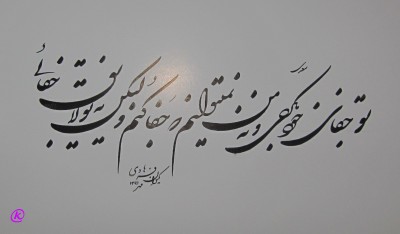 سعدی
تو جفای خود بکردی و نه من نمیتوانم که جفا کنم ولیکن نه تو لایق جفایی
k